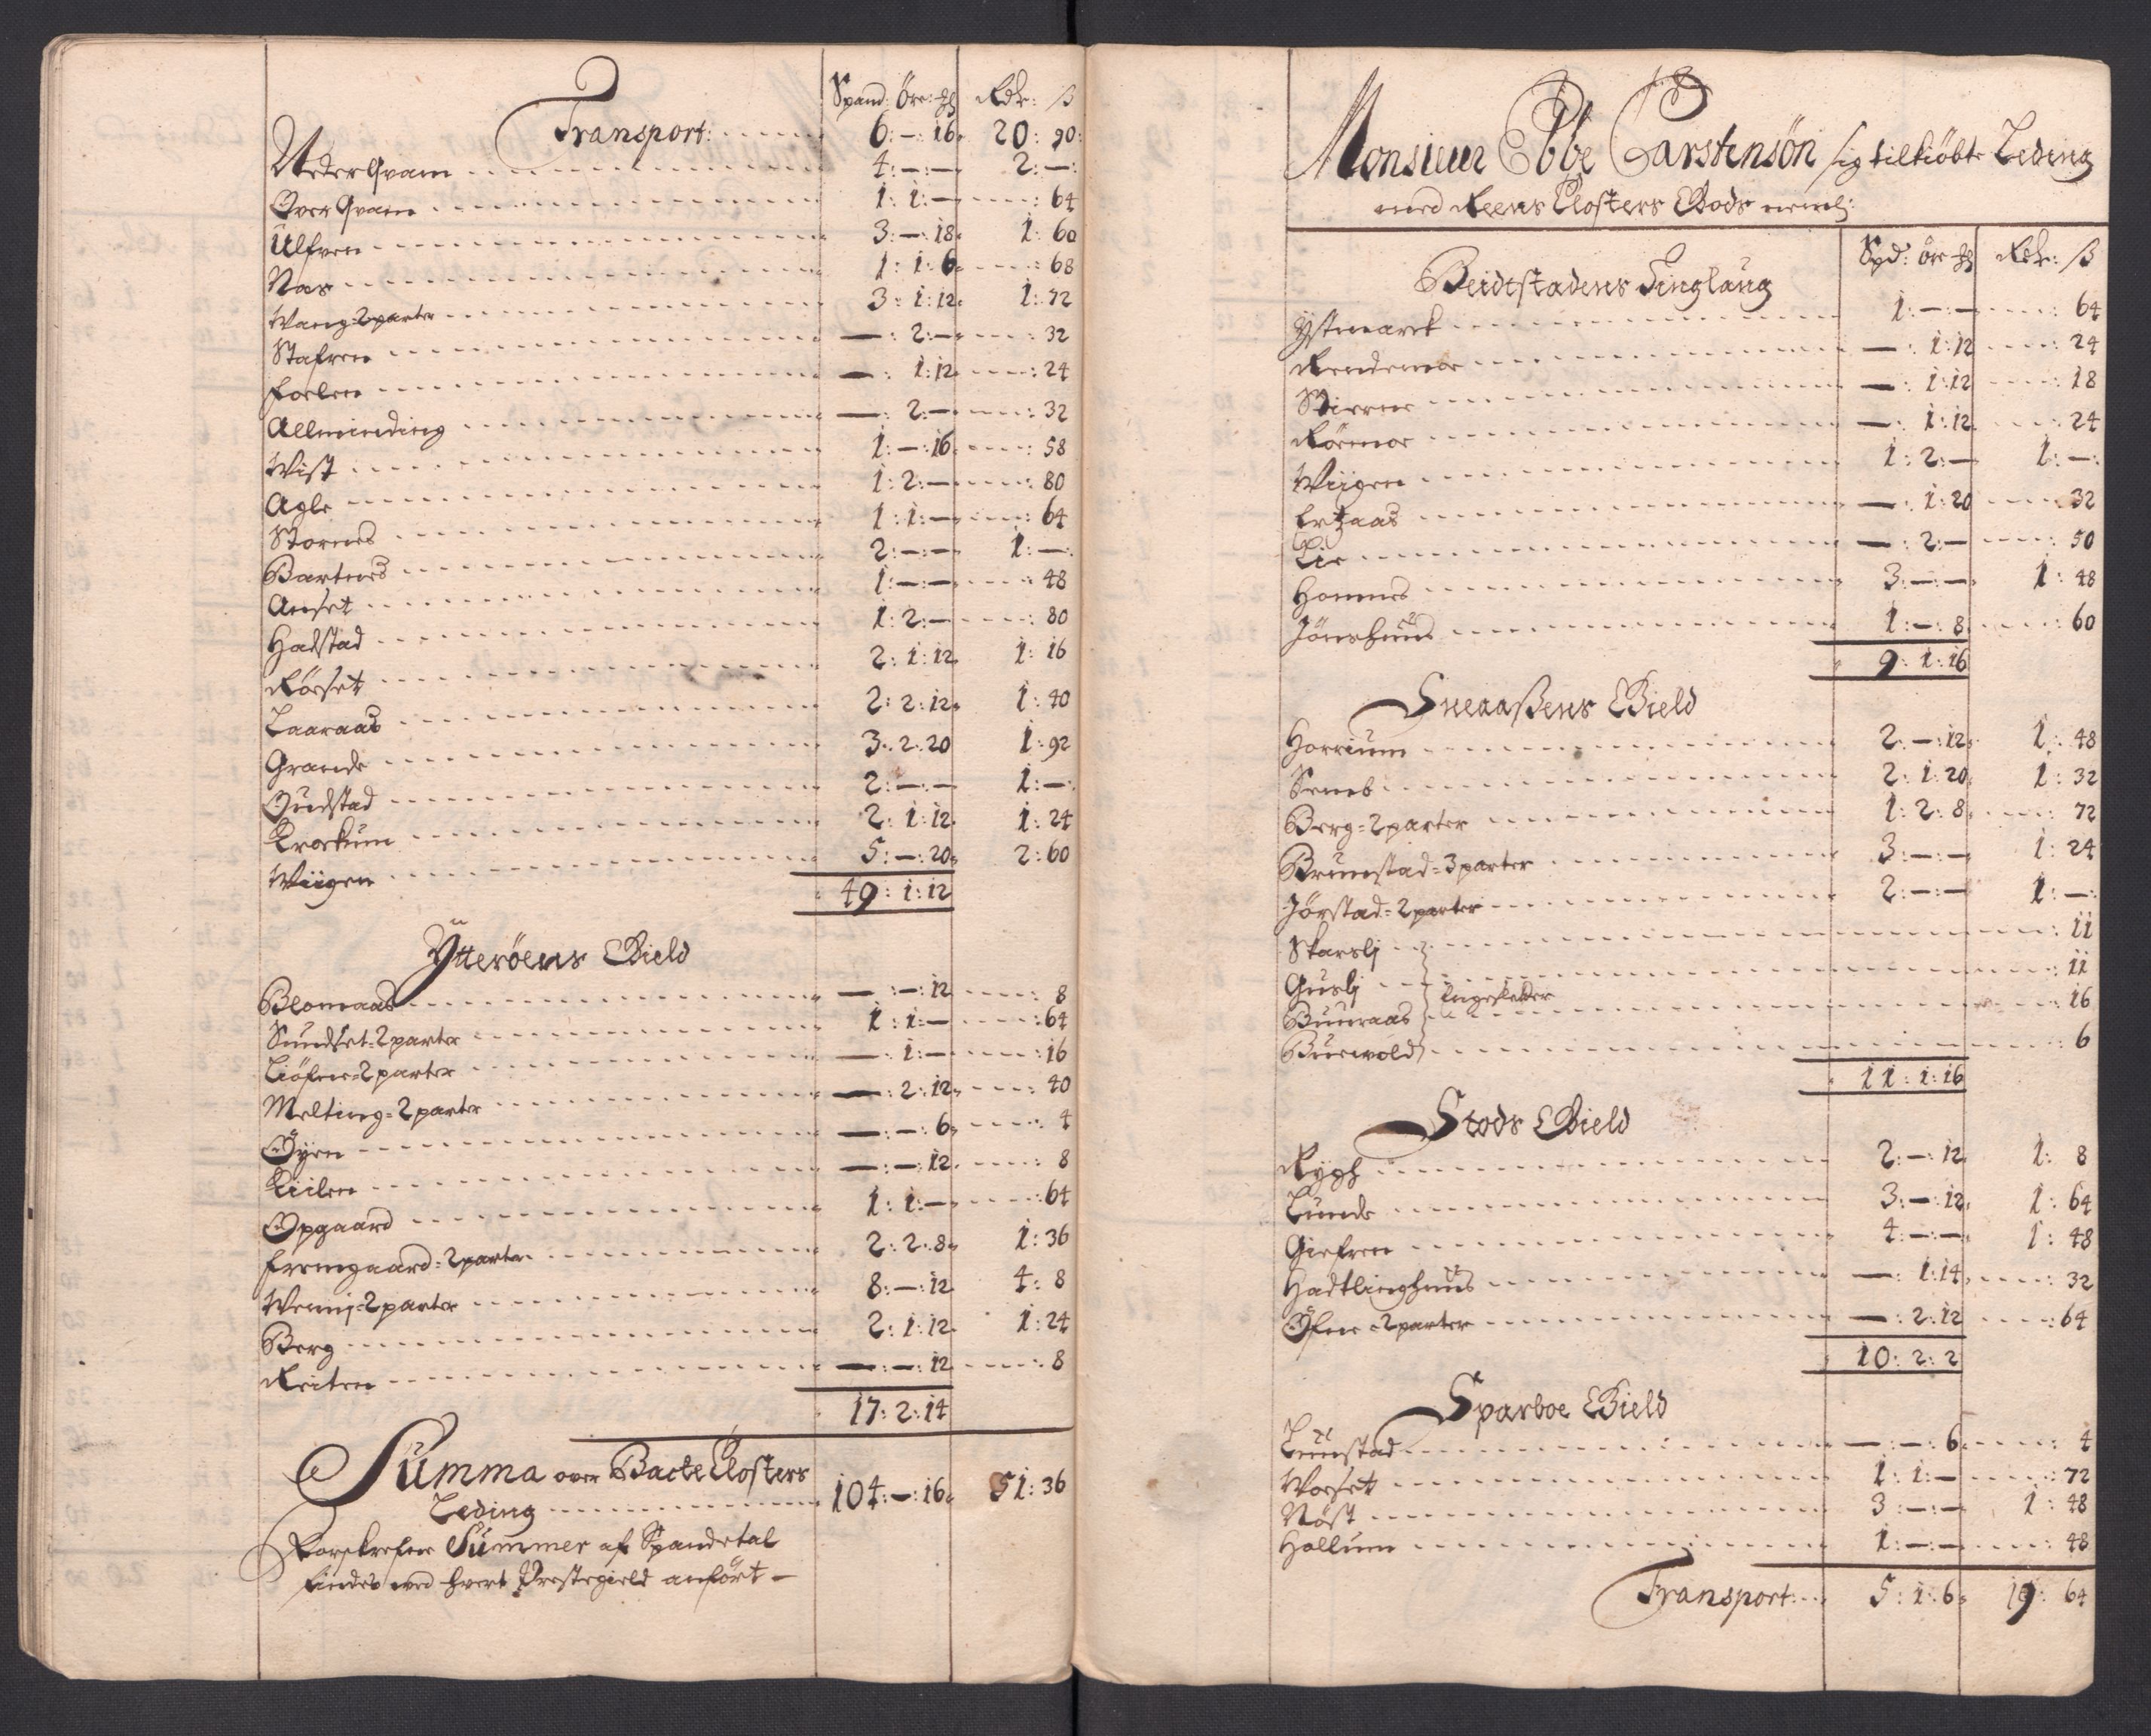 Spand: Öre: Rdr: ß
Transport: 6: —: 16 20: 90
Neder Qvam 4: —: — 2: —
Over Qvam 1: 1: — 64
Ulfven 3: —: 18 1: 60
Nas 1: 1: 6 68
Wang: 2 parter 3: 1: 12 1: 72
Stafren —: 2: — 32
Foelen —: 1: 12 24
Allminding —: 2: — 32
Wist 1: —: 16 58
Agle 1: 2: — 80
Stornes 1: 1: — 64
Bartnes 2: —: — 1: —
Anset 1: —: — 48
Hadstad 1: 2: — 80
Rörset 2: 1: 12 1: 16
Laaraas 2: 2: 12 1: 40
Grande 3: 2: 20 1: 92
Gudstad 2: —: — 1: —
Krockum 2: 1: 12 1: 24
Wiigen 5: —: 20 2: 60
49: 1: 12
Ÿtteröens Gield
Blomaas —: —: 12 8
Sundset: 2 parter 1: 1: — 64
Liöfne: 2 parter —: 1: — 16
Melting: 2 parter —: 2: 12 40
Öyen —: —: 6 4
Kiilen —: —: 12 8
Opgaard 1: 1: — 64
Fremgaard: 2 parter 2: 2: 8 1: 36
Wennj: 2 parter 8: —: 12 4: 8
Berg 2: 1: 12 1: 24
Reiten —: —: 12 8
17: 2: 14
Summa over Backe Closters
Leding 104: —: 16 51: 36
Forskrefne Summer af Spandetal
findes ved hvert Prestegield anfört —
Monsieur Ebbe Carstensön sig tilkiöbte Leding
med Reens Closters Gods neml:
Spd: öre Rdr: ß
Beidtstadens Tinglaug
Ÿstmarck 1: —: — 64
Rendemoe —: 1: 12 24
Stirene —: 1: 12 18
Rörmoe —: 1: 12 24
Wiigen 1: 2: — 1: —
Ertzaas —: 1: 20 32
Lie —: 2: — 50
Homnes 3: —: — 1: 48
Jönshuus 1: —: 8 60
9: 1: 16
Sneaaßens Gield
Horrium 2: —: 12 1: 48
Semb 2: 1: 20 1: 32
Berg: 2 parter 1: 2: 8 72
Brunstad: 3 parter 3: —: — 1: 24
Jörstad: 2 parter 2: —: — 1: —
Skarslj 11
Guslj 11
Engesletter
Buuraas 16
Buevold 6
11: 1: 16
Stods Gield
Rygh 2: —: 12 1: 8
Lunde 3: —: 12 1: 64
Giefren 4: —: — 1: 48
Hadtlinghuus —: 1: 14 32
Öfne: 2 parter —: 2: 12 64
10: 2: 2
Sparboe Gield
Luustad —: —: 6 4
Worset 1: 1: — 72
Nöst 3: —: — 1: 48
Hollum 1: —: — 48
Transport: 5: 1: 6 19: 64